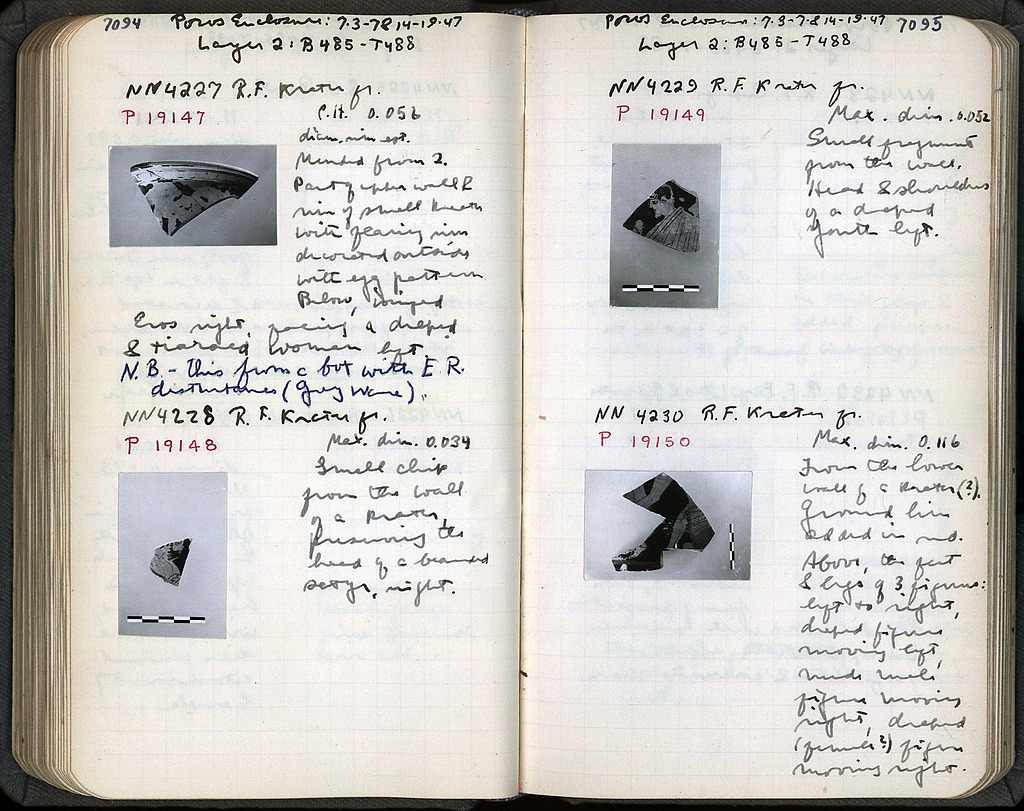 7094 Poros Enclosure: 7.3-7.8 14-19.'47
Layer 2: B485-T488
NN4227 R.F. Krater fr.
P 19147
P.H. 0.056
diam. rim est.
Mended from 2.
Part of upper wall &
rim of small krater
with flaring rim
decorated outside
with egg pattern.
Below, winged
Eros right, facing a draped
& tiaraed woman left
N.B. - this from c bot with E.R.
disturbances (Grey Ware).
NN4228 R.F. Krater fr.
P 19148
Max. dim. 0.034
Small chip
from the wall
of a krater,
preserving the
head of a bearded
satyr, right.
Poros Enclosure: 7.3-7.8 14-19.'47 7095
Layer 2: B485-T488
NN4229 R.F. Krater fr.
P 19149
Max. dim. 0.052
Small fragment
from the wall.
Head & shoulders
of a draped
youth left.
NN 4230 R.F. Krater fr.
P 19150
Max. dim. 0.116
From the lower
wall of a krater(?).
Ground line
added in red.
Above, the feet
& legs of 3 figures:
left to right,
draped figure
moving left,
nude male
figure moving
right, draped
(female?) figure
moving right.